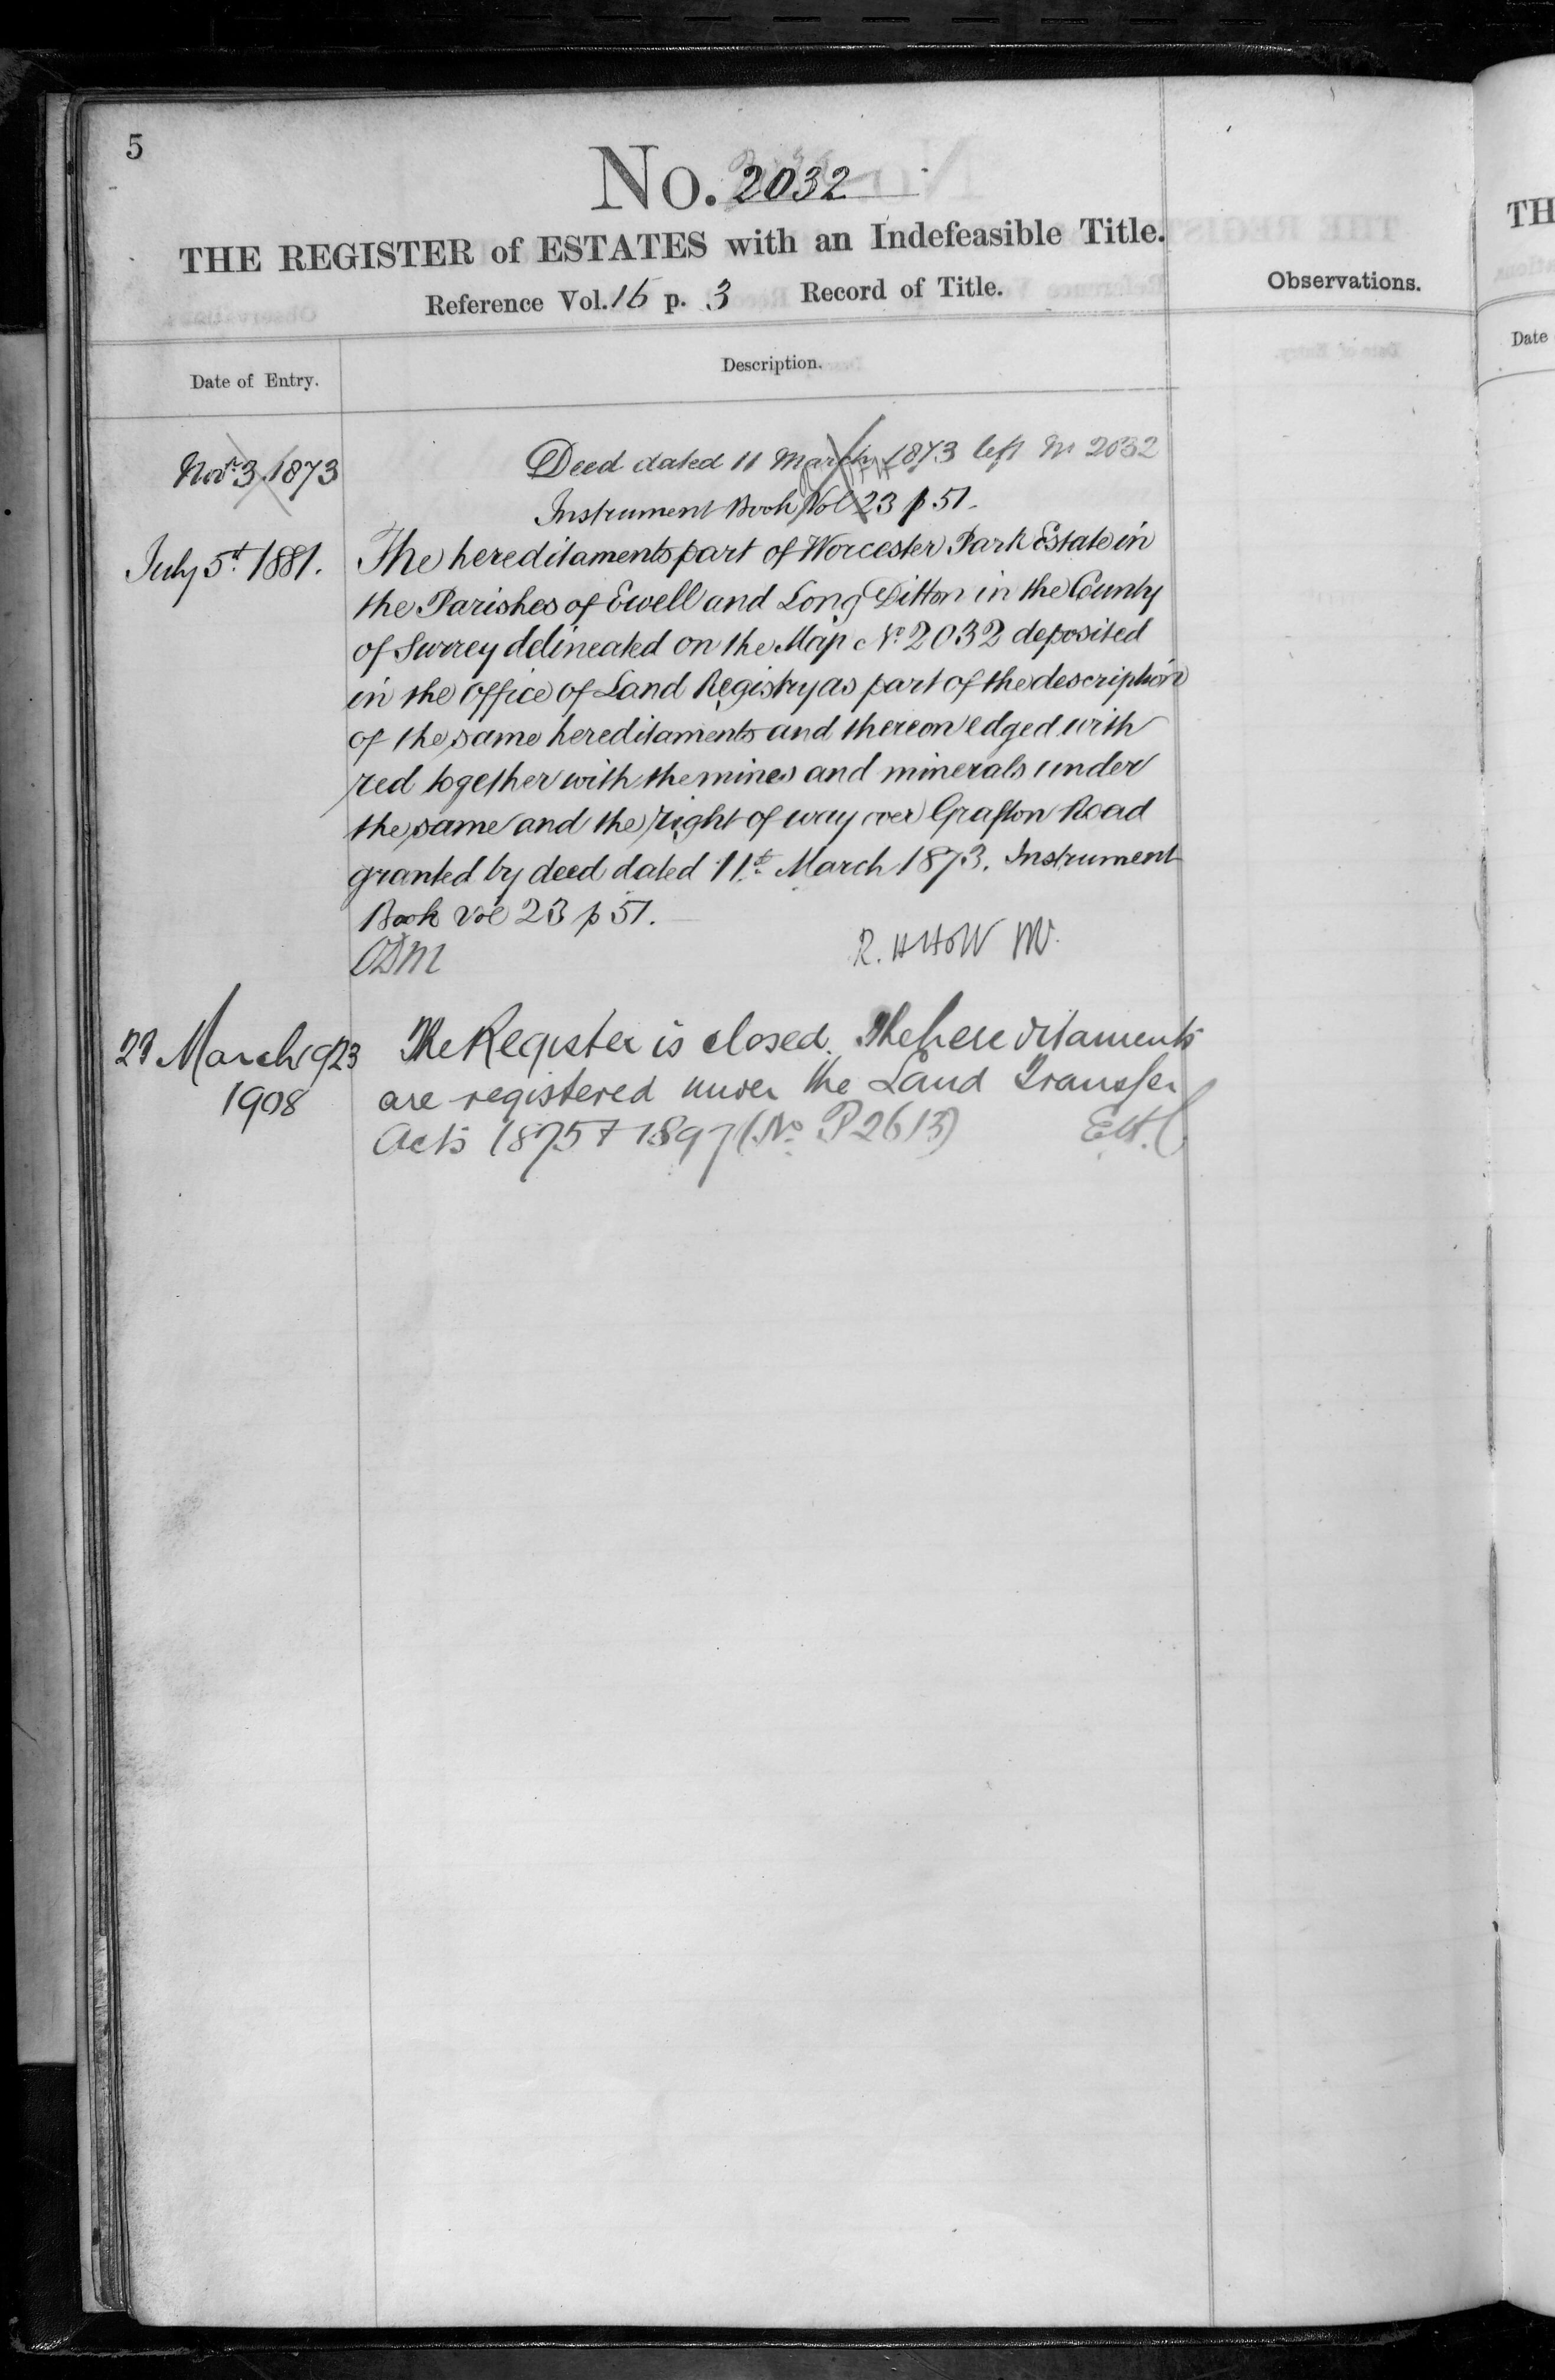 5
No. 2032
THE REGISTER of ESTATES with an Indefeasible Title.
Reference Vol. 15 p. 3 Record of Title.
Observations.
Date of Entry.
Description.
Novr 3 1873
Deed dated 11 March 1873 left in 2032
Instrument Book Vol 23 p 51.
July 5th 1881.
The hereditaments part of Worcester Park Estate in
the Parishes of Ewell and Long Ditton in the County
of Surrey delineated on the Map No. 2032 deposited
in the office of Land Registry as part of the description
of the same hereditaments and thereon edged with
red together with the mines and minerals under
the same and the right of way over Grafton Road
granted by deed dated 11th March 1873. Instrument
Book Vol 23 p 51.
R. H Holt
23 March
1908
The Register is closed. The hereditaments
are registered under the Land Transfer
Acts 1875 & 1897 (No. P2613)
TH
Date